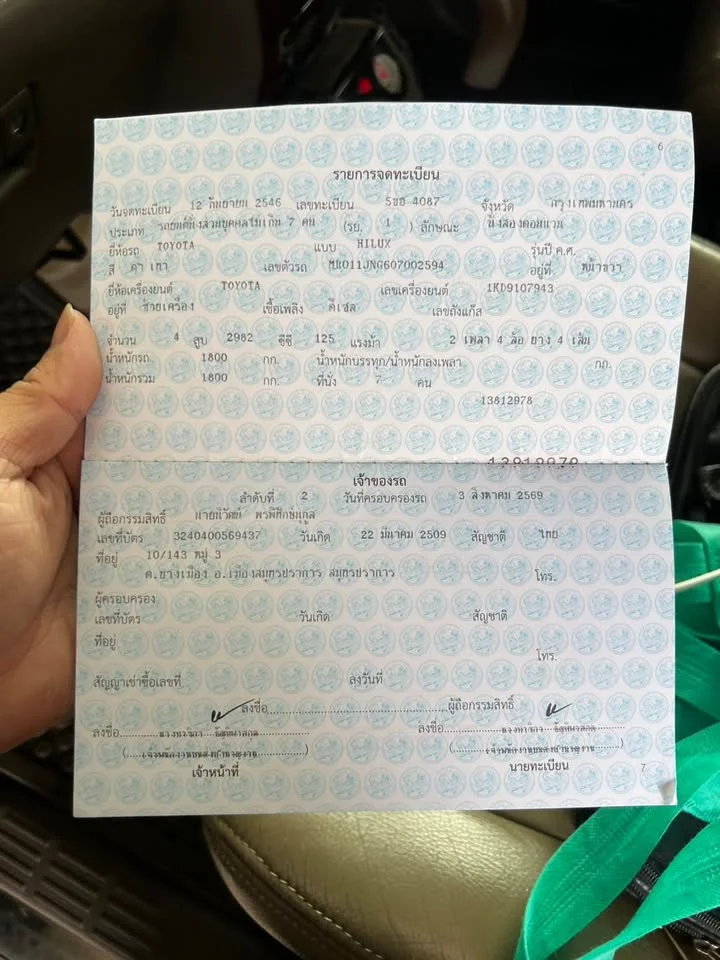 6
รายการจดทะเบียน
วันจดทะเบียน 12 กันยายน 2546 เลขทะเบียน 5ขอ 4087 จังหวัด กรุงเทพมหานคร
ประเภท รถยนต์นั่งส่วนบุคคลไม่เกิน 7 คน (รย. 1 ) ลักษณะ นั่งสองตอนแวน
ยี่ห้อรถ TOYOTA แบบ HILUX รุ่นปี ค.ศ.
สี ดำ เทา เลขตัวรถ MR011JNG607002594 อยู่ที่ หน้าขวา
ยี่ห้อเครื่องยนต์ TOYOTA เลขเครื่องยนต์ 1KD9107943
อยู่ที่ ซ้ายเครื่อง เชื้อเพลิง ดีเซล เลขถังแก๊ส
จำนวน 4 สูบ 2982 ซีซี 125 แรงม้า 2 เพลา 4 ล้อ ยาง 4 เส้น
น้ำหนักรถ 1800 กก. น้ำหนักบรรทุก/น้ำหนักลงเพลา กก.
น้ำหนักรวม 1800 กก. ที่นั่ง 7 คน
13812978
เจ้าของรถ
ลำดับที่ 2 วันที่ครอบครองรถ 3 สิงหาคม 2569
ผู้ถือกรรมสิทธิ์ นายนิวัฒน์
เลขที่บัตร 3240400569437 วันเกิด 22 มีนาคม 2509 สัญชาติ ไทย
ที่อยู่ 10/143 หมู่ 3
ต.บางเมือง อ.เมืองสมุทรปราการ สมุทรปราการ โทร.
ผู้ครอบครอง
เลขที่บัตร วันเกิด สัญชาติ
ที่อยู่
โทร.
สัญญาเช่าซื้อเลขที่ ลงวันที่
ลงชื่อ ผู้ถือกรรมสิทธิ์
ลงชื่อ ลงชื่อ
เจ้าหน้าที่ นายทะเบียน
7